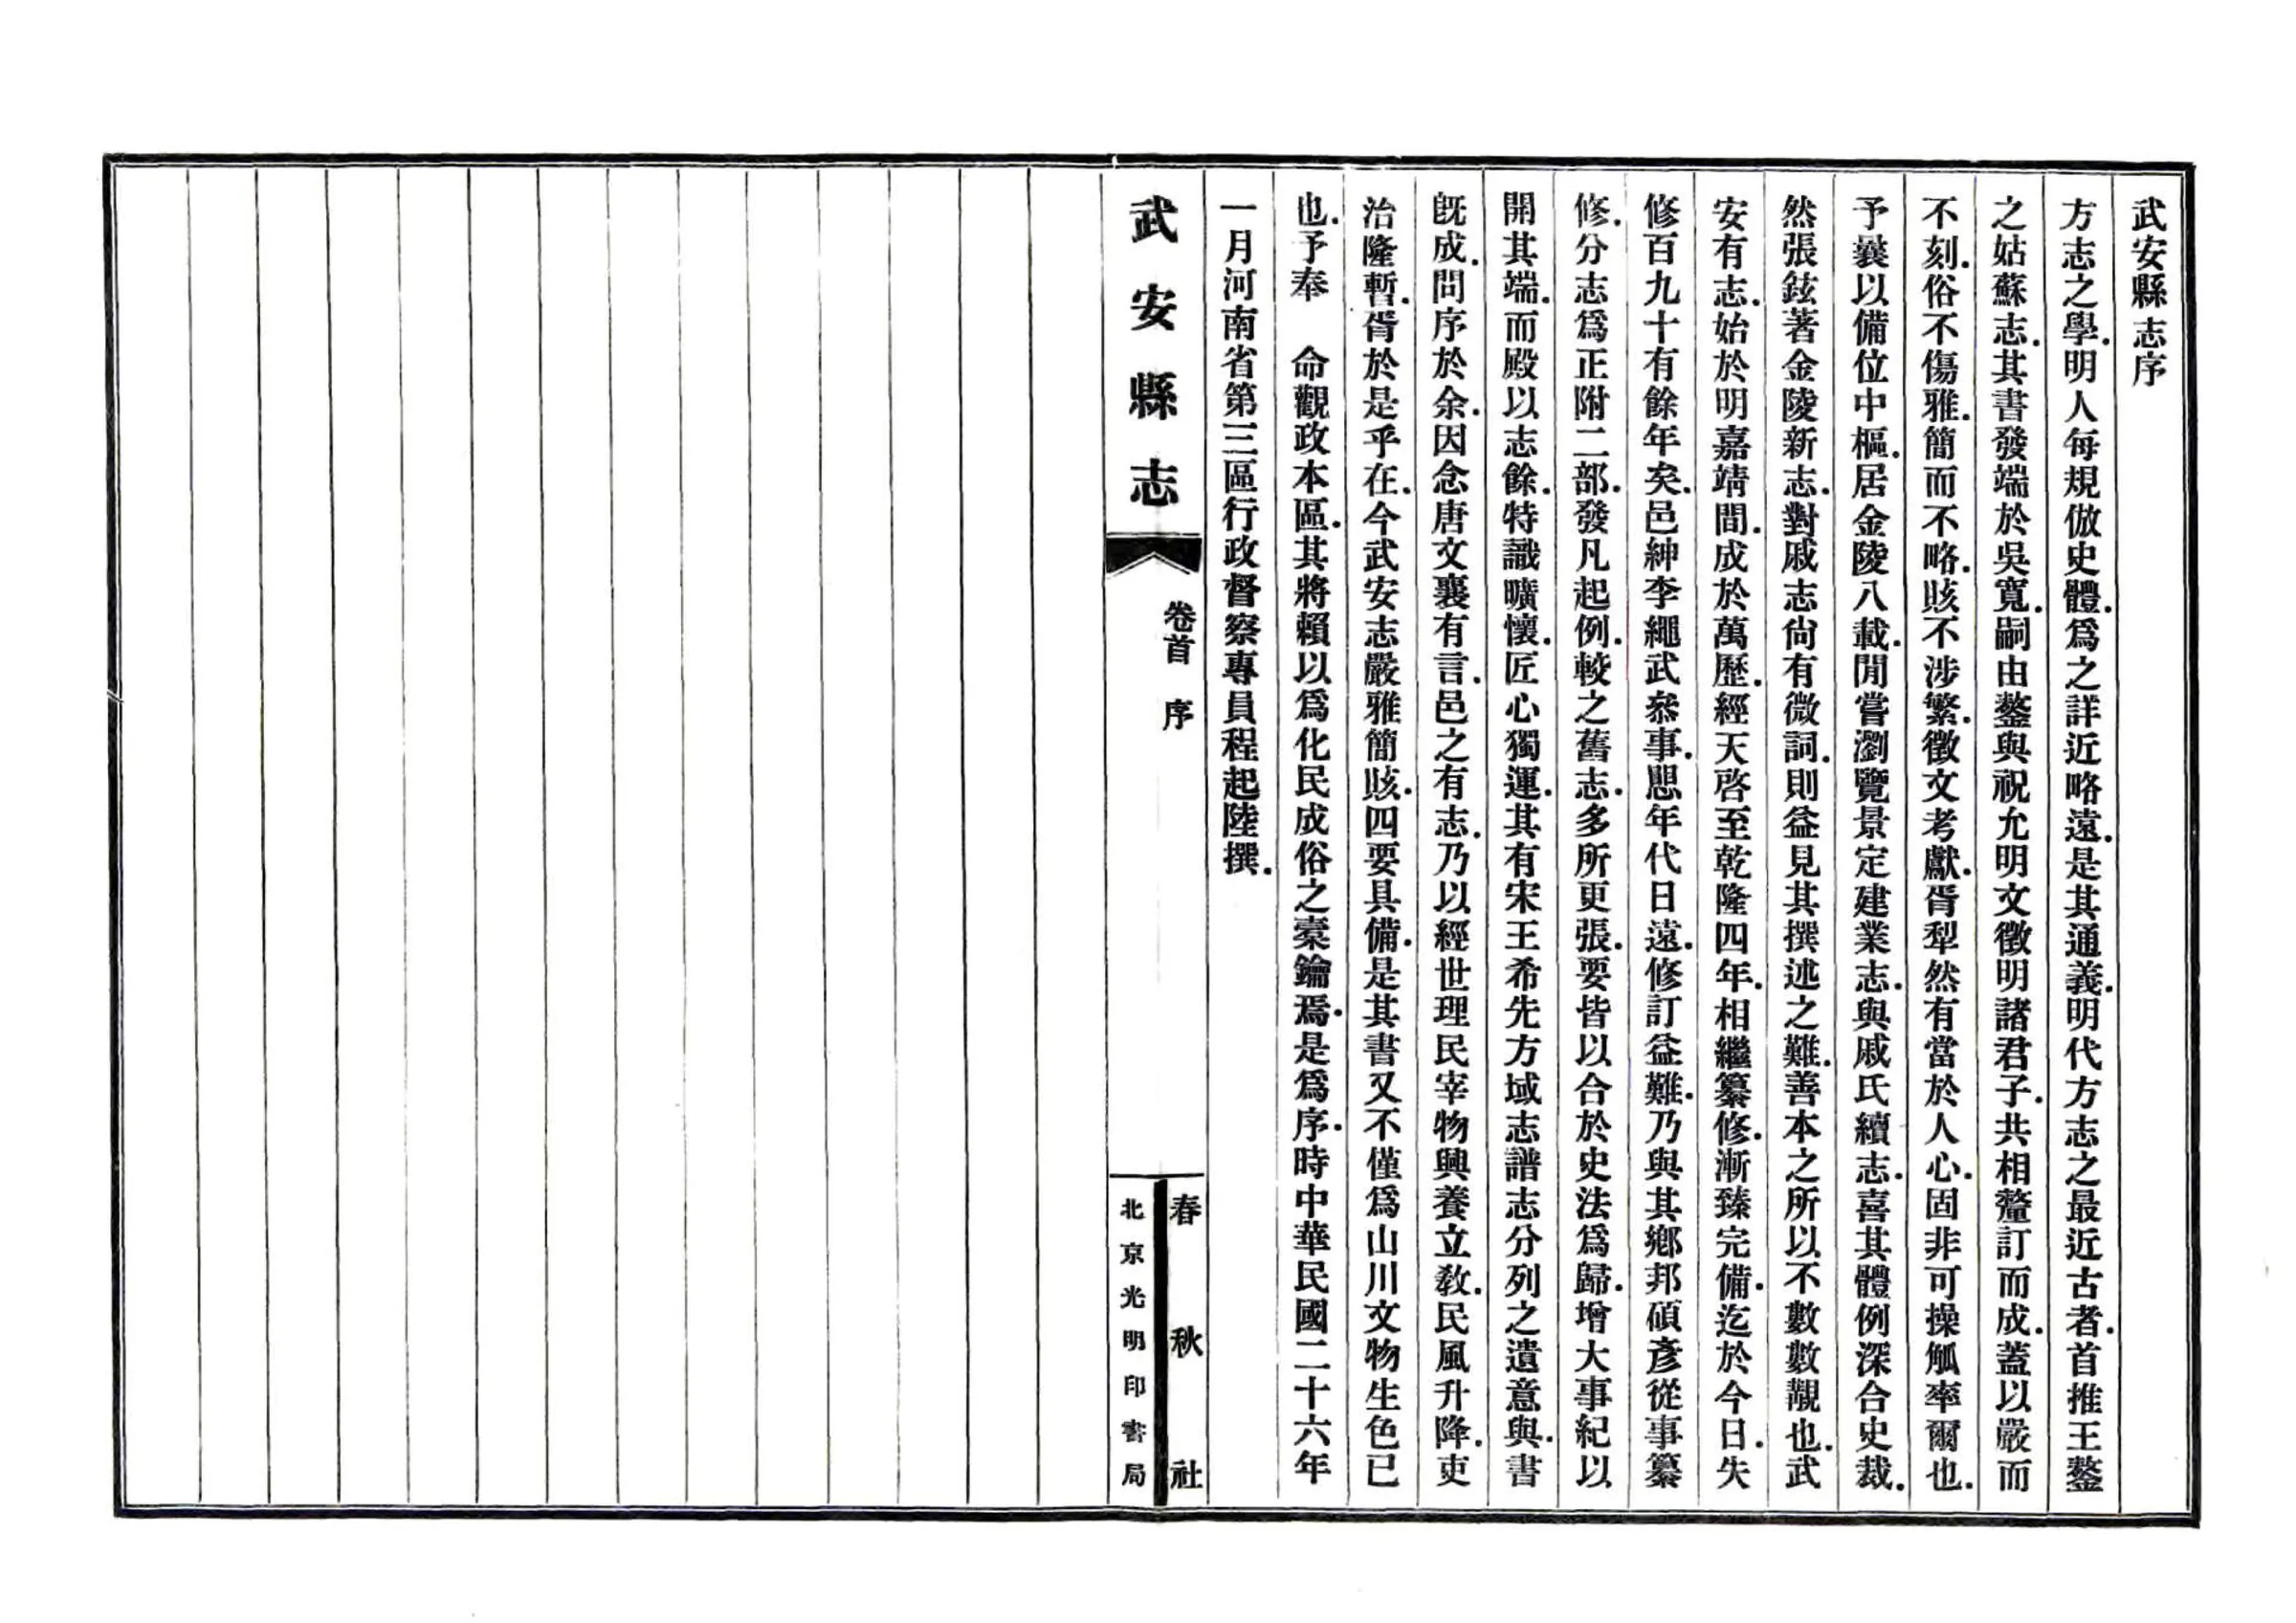 武安縣志序
方志之學.明人每規倣史體.爲之詳近略遠.是其通義.明代方志之最近古者.首推王鏊
之姑蘇志.其書發端於吳寬.嗣由鏊與祝允明文徵明諸君子.共相釐訂而成.蓋以嚴而
不刻.俗不傷雅.簡而不略.賅不涉繁.徵文考獻.胥犁然有當於人心.固非可操觚率爾也.
予曩以備位中樞.居金陵八載.閒嘗瀏覽景定建業志.與戚氏續志.喜其體例深合史裁.
然張鉉著金陵新志.對戚志尙有微詞.則益見其撰述之難.善本之所以不數數覯也.武
安有志.始於明嘉靖間.成於萬歷.經天啓至乾隆四年.相繼纂修.漸臻完備.迄於今日.失
修百九十有餘年矣.邑紳李繩武叅事.思年代日遠.修訂益難.乃與其鄕邦碩彥從事纂
修.分志爲正附二部.發凡起例.較之舊志.多所更張.要皆以合於史法爲歸.增大事紀以
開其端.而殿以志餘.特識曠懷.匠心獨運.其有宋王希先方域志譜志分列之遺意與.書
旣成.問序於余.因念唐文襄有言.邑之有志.乃以經世理民宰物興養立敎.民風升降.吏
治隆暫.胥於是乎在.今武安志嚴雅簡賅.四要具備.是其書又不僅爲山川文物生色已
也.予奉　命觀政本區.其將賴以爲化民成俗之橐鑰焉.是爲序.時中華民國二十六年
一月河南省第三區行政督察專員程起陸撰.
武安縣志
卷首　序
春秋社
北京光明印書局